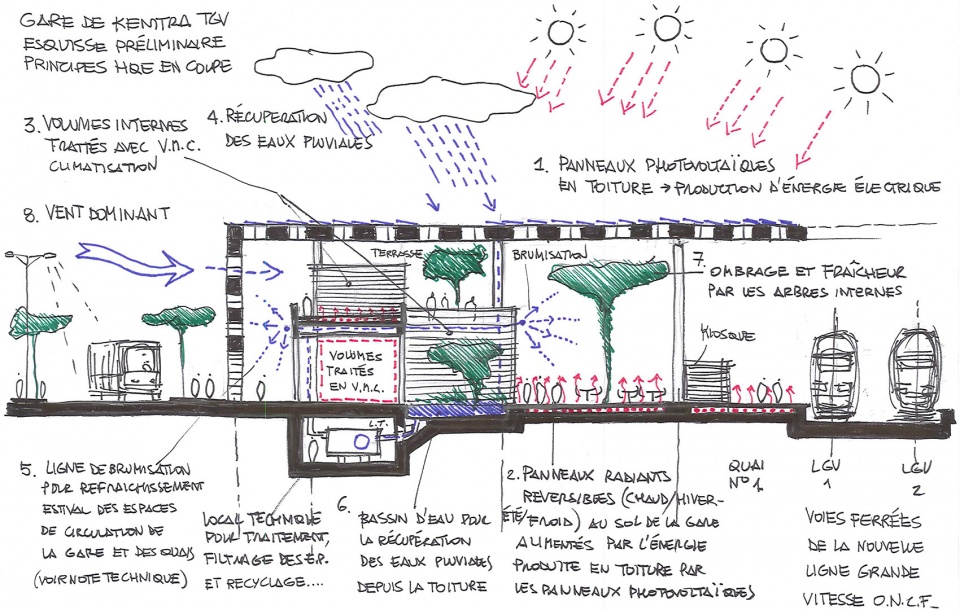 GARE DE KENITRA TGV
ESQUISSE PRÉLIMINAIRE
PRINCIPES HQE EN COUPE
3. VOLUMES INTERNES
TRAITÉS AVEC V.M.C.
CLIMATISATION
4. RÉCUPERATION
DES EAUX PLUVIALES
1. PANNEAUX PHOTOVOLTAÏQUES
EN TOITURE → PRODUCTION D'ÉNERGIE ÉLECTRIQUE
8. VENT DOMINANT
TERRASSE
BRUMISATION
7.
OMBRAGE ET FRAÎCHEUR
PAR LES ARBRES INTERNES
KIOSQUE
VOLUMES
TRAITÉS
EN V.M.C.
L.T.
5. LIGNE DE BRUMISATION
POUR REFRAICHISSEMENT
ESTIVAL DES ESPACES
DE CIRCULATION DE
LA GARE ET DES QUAIS
(VOIR NOTE TECHNIQUE)
LOCAL TECHNIQUE
POUR TRAITEMENT,
FILTRAGE DES E.P.
ET RECYCLAGE....
6.
BASSIN D'EAU POUR
LA RÉCUPÉRATION
DES EAUX PLUVIALES
DEPUIS LA TOITURE
2. PANNEAUX RADIANTS
REVERSIBLES (CHAUD/HIVER-
ÉTÉ/FROID) AU SOL DE LA GARE
ALIMENTÉS PAR L'ÉNERGIE
PRODUITE EN TOITURE PAR
LES PANNEAUX PHOTOVOLTAÏQUES
QUAI
N°1
LGV
1
LGV
2
VOIES FERRÉES
DE LA NOUVELLE
LIGNE GRANDE
VITESSE O.N.C.F.